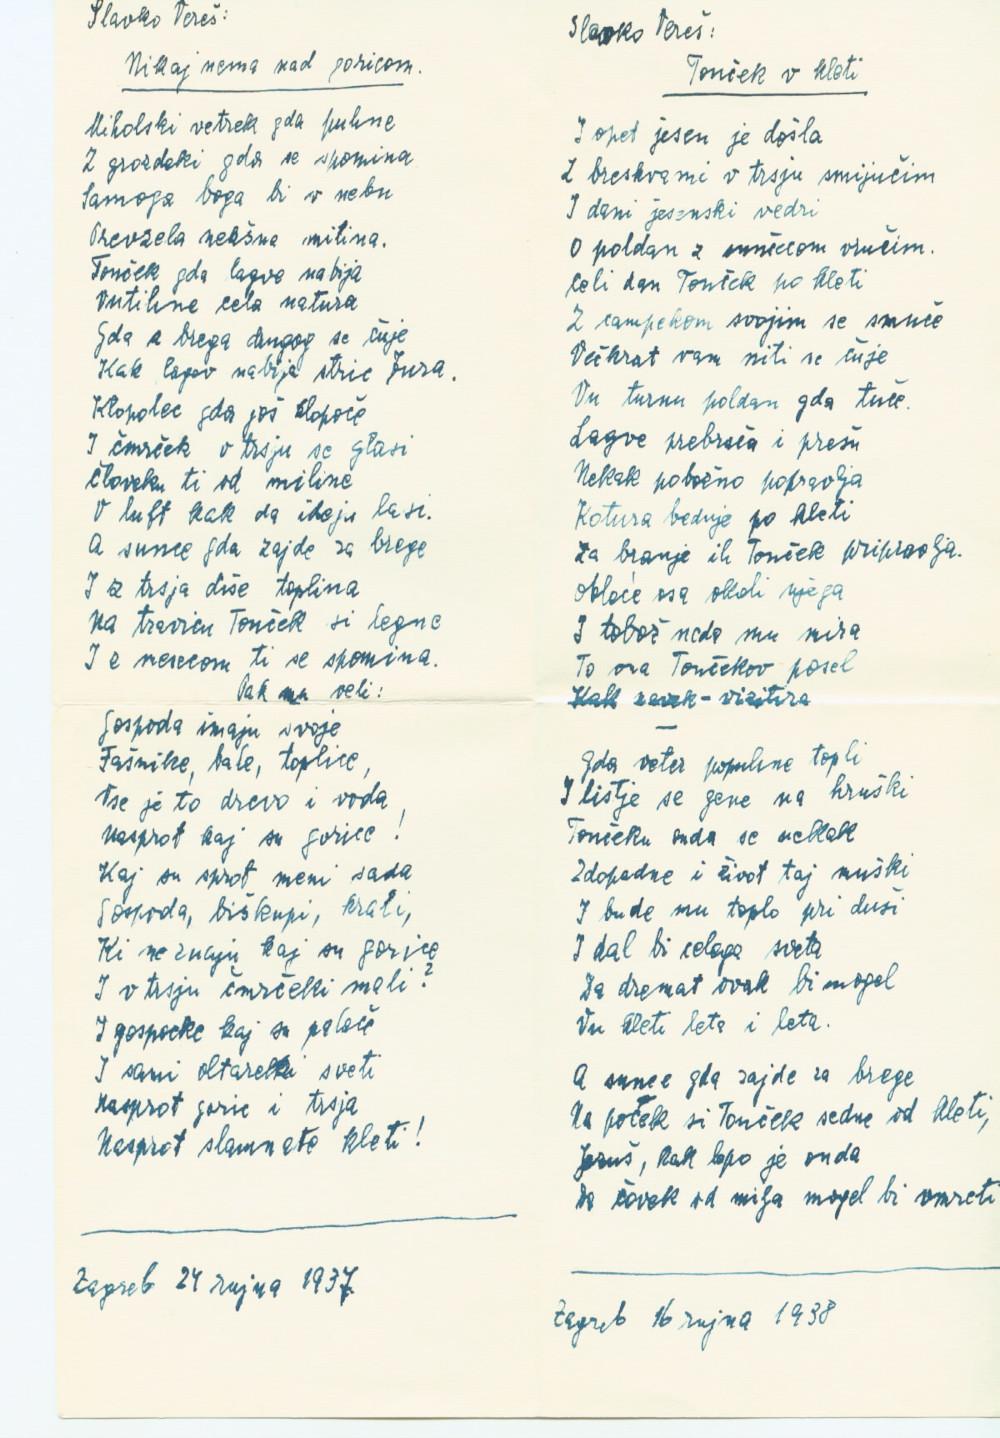 Slavko Vereš:
Nikaj nema nad goricom.
Miholski vetrek gda puhne
Z grozdeki gda se spomina
Samoga boga bi v nebu
Prevzela nekšna milina.
Tonček gda lagve nabija
Vutihne cela natura
Gda z brega drugog se čuje
Kak lagov nabija stric Jura.
Klopolec gda još klopoče
I čmrček v trsju se glasi
Človeku ti od miline
V luft kak da ideju lasi.
A sunce gda zajde za brege
I z trsja diše toplina
Na travicu Tonček si legne
I z mesecom ti se spomina.
Pak mu veli:
Gospoda imaju svoje
Fašnike, bale, toplice,
Vse je to drevo i voda
Nasprot kaj su gorice!
Kaj su sprot meni sada
Gospoda, biškupi, krali,
Ki ne znaju kaj su gorice
I v trsju čmrčeki mali?
I gospocke kaj su palače
I sami oltareki sveti
Nasprot goric i trsja
Nasprot slamnate kleti!
Zagreb 24 rujna 1937.
Slavko Vereš:
Tonček v kleti
I opet jesen je došla
Z breskvami v trsju smijučim
I dani jesenski vedri
O poldan z sunčecom vručim.
Celi dan Tonček po kleti
Z campekom svojim se smuče
Večkrat vam niti ne čuje
Vu turnu poldan gda tuče.
Lagve prebrsča i prešu
Nekak pobožno popravlja
Kotura beduje po kleti
Za branje ih Tonček pripravlja.
Obleče osa okoli njega
I tobož neda mu mira
To ona Tončekov posel
Kak navek - vizitira
—
Gda veter popuhne topli
I listje se gene na hruški
Tončeku onda se nekak
Zdopadne i život taj muški
I bude mu toplo pri duši
I dal bi celoga sveta
Da dremat ovak bi mogel
Vu kleti leta i leta.
A sunce gda zajde za brege
Na poček si Tonček sedne od kleti,
Jezuš, kak lepo je onda
Da čovek od milja mogel bi vmreti
Zagreb 16 rujna 1938